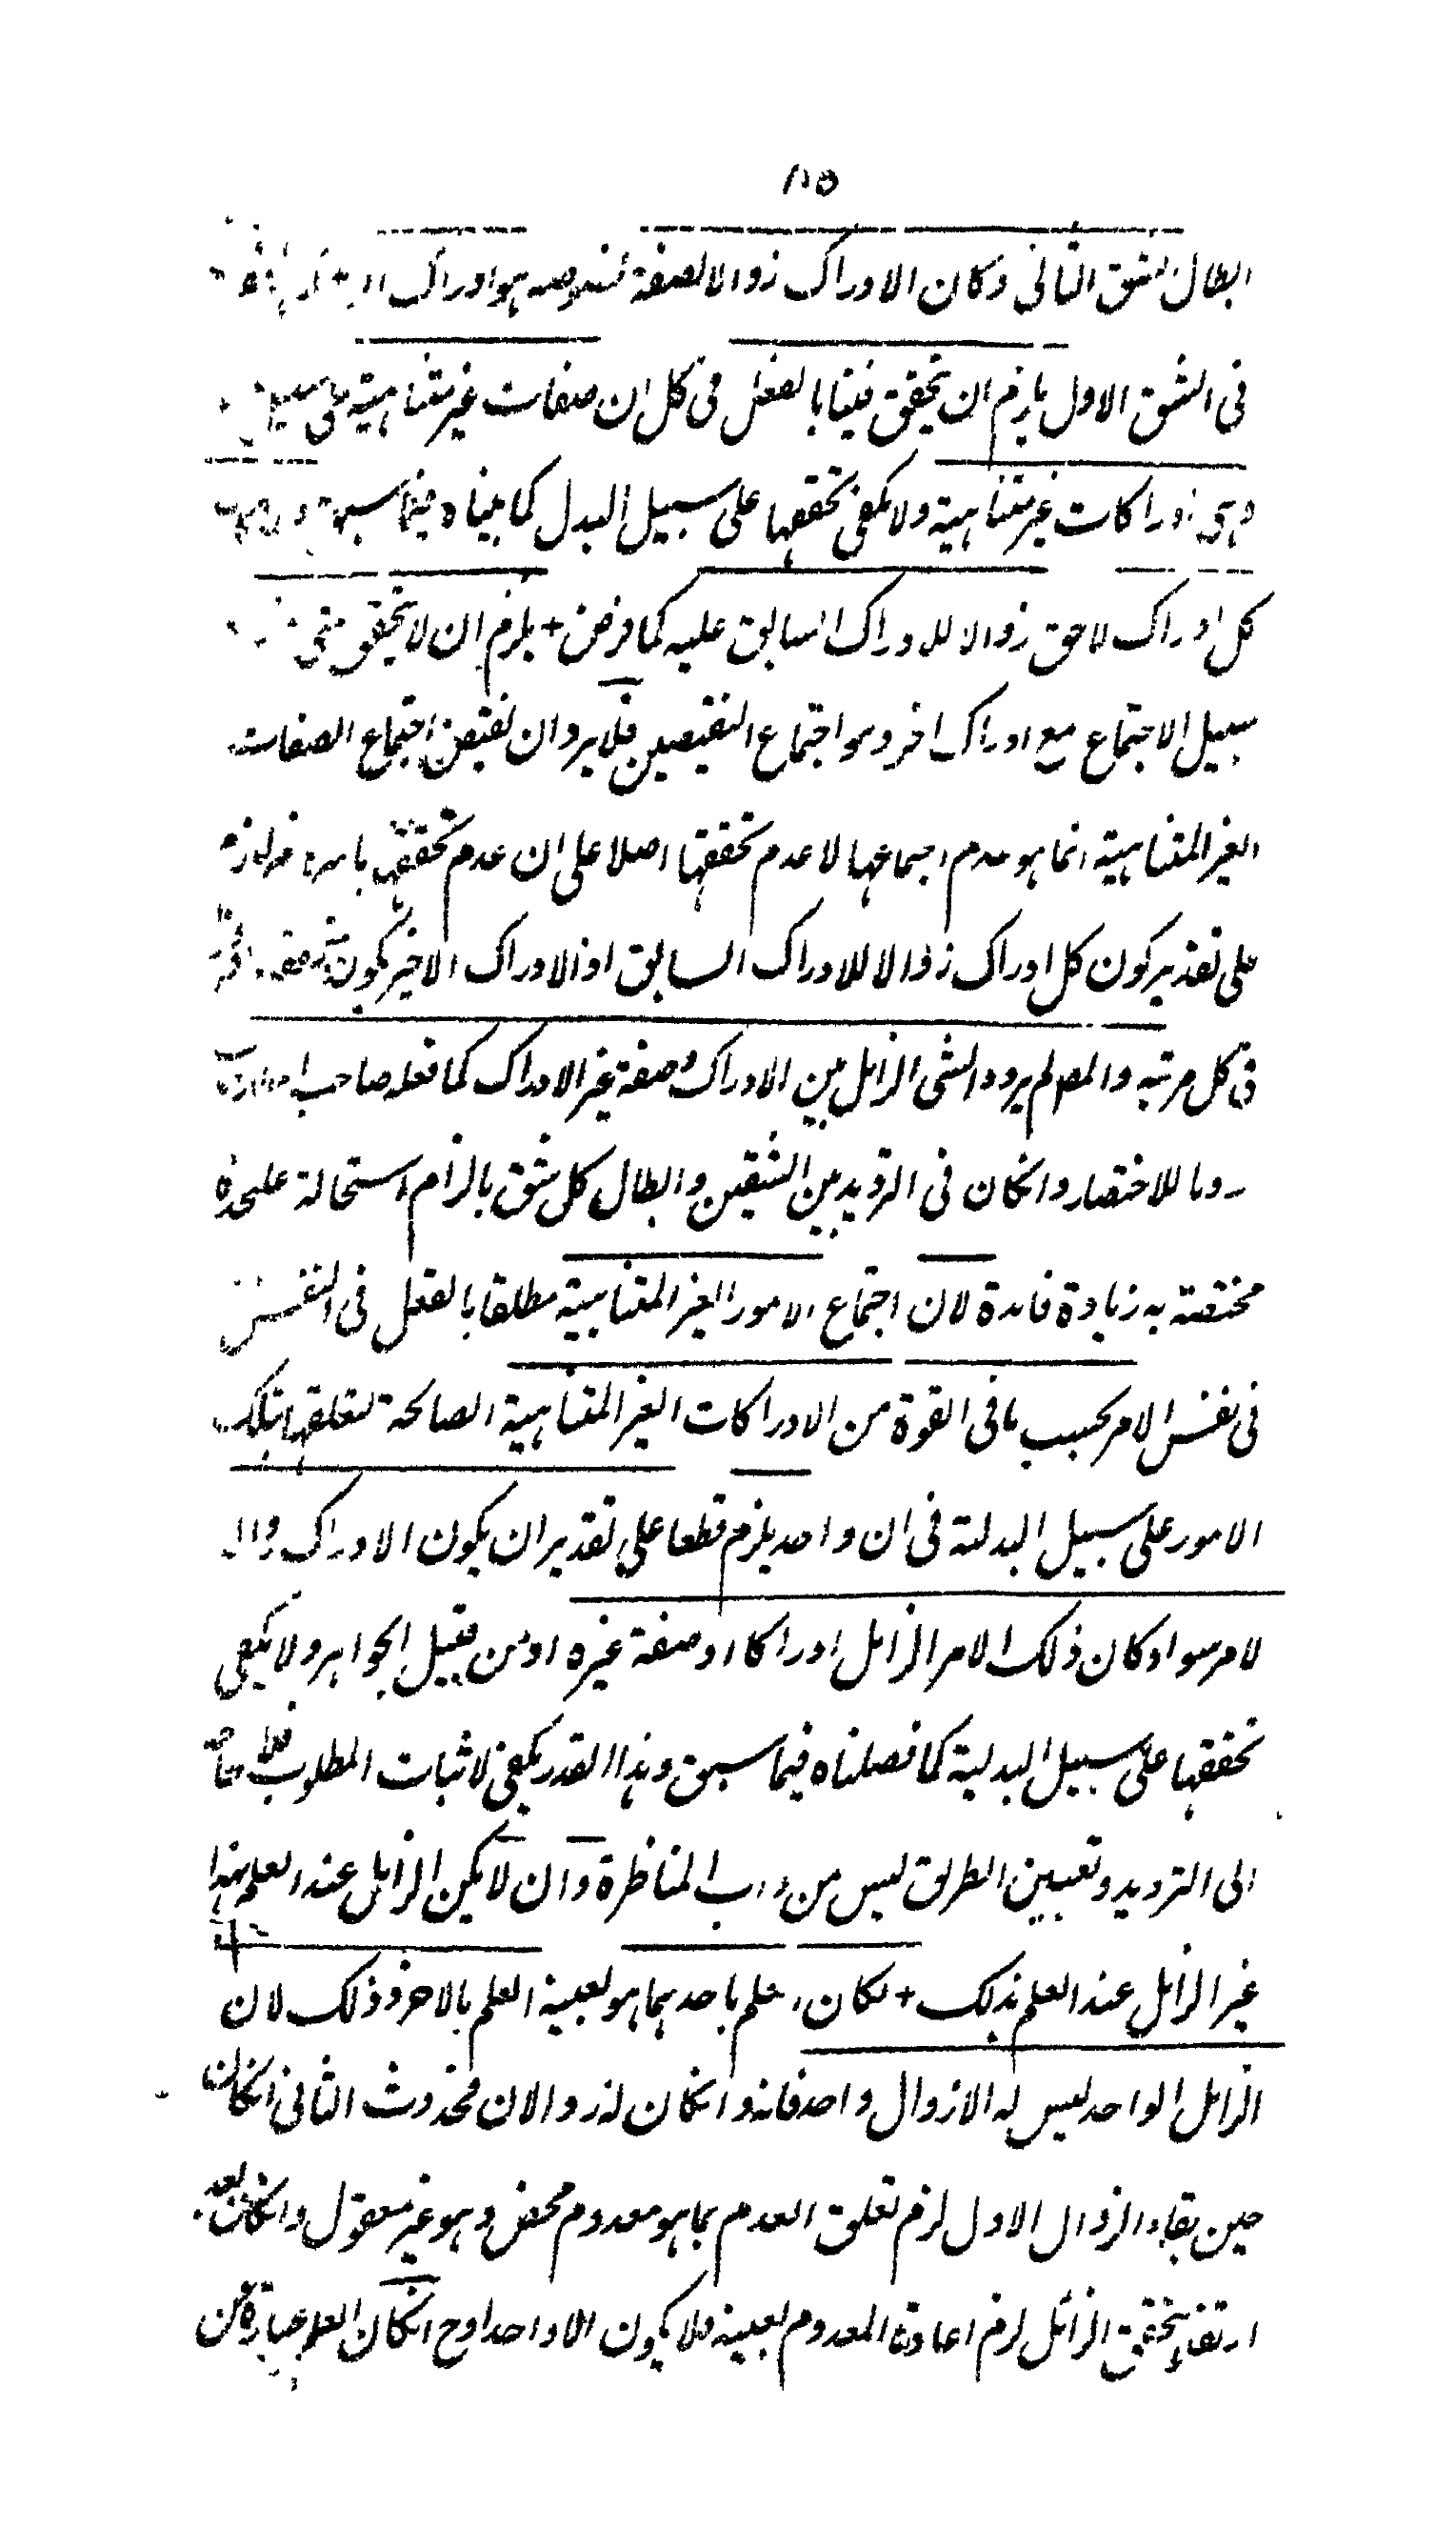 ابطال الشق الثانى وكان الادراك زوالا لصفة هو ادراك
فى الشق الاول يلزم ان يتحقق فينا بالفعل فى كل ان صفات غير متناهية على سبيل
وهى ادراكات غير متناهية ولا يكفى تحققها على سبيل البدل كما بيناه فيما سبق
كل ادراك لاحق زوالا للادراك السابق عليه كما فرض + يلزم ان لا يتحقق
سبيل الاجتماع مع ادراك اخر وهو اجتماع النقيضين فلا يرد ان نقيض اجتماع الصفات
الغير المتناهية انما هو عدم اجتماعها لا عدم تحققها اصلا على ان عدم تحققها
على تقدير كون كل ادراك زوالا للادراك السابق اذ الادراك الاخير يكون
فى كل مرتبه والمصر لم يردد الشى الزايل بين الادراك وصفة غير الادراك كما فعله صاحب
روما للاختصار وانكان فى الترديد بين الشقين وابطال كل شق بالزام استحالة عليحدة
مختصة به زيادة فائدة لان اجتماع الامور الغير المتناهية مطلقا بالفعل فى النفس
فى نفس الامر بحسب ما فى القوة من الادراكات الغير المتناهية الصالحة لتعلقها بتلك
الامور على سبيل البدلية فى ان واحد يلزم قطعا على تقدير ان يكون الادراك زوالا
لامر سواء كان ذلك الامر الزايل ادراكا او صفة غيره او من قبيل الجواهر ولا يكفى
تحققها على سبيل البدلية كما فصلناه فيما سبق وهذا القدر يكفى لاثبات المطلوب فلا حاجة
الى الترديد وتعيين الطريق ليس من داب المناظرة وان لا يكن الزايل عند العلم بهذا
غير الزايل عند العلم بذلك + لكان العلم باحدهما هو بعينه العلم بالاخر وذلك لان
الزايل الواحد ليس له الا زوال واحد فانه وانكان له زوالان فحدوث الثانى انكان
حين بقاء الزوال الاول لزم تعلق العدم بما هو معدوم محض وهو غير معقول وانكان بعد
ارتفاع تحقق الزائل لزم اعادة المعدوم بعينه فلا يكون الا واحدا وح انكان العلم عبارة عن